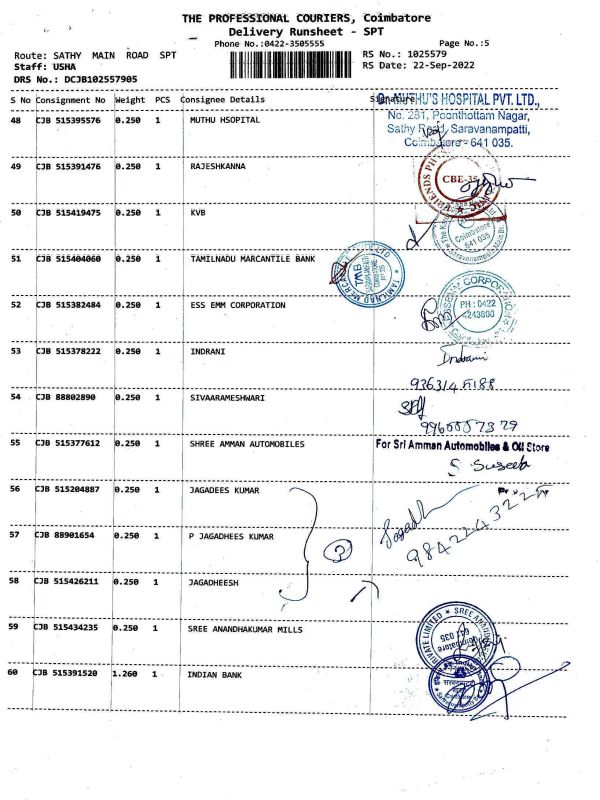 THE PROFESSIONAL COURIERS, Coimbatore
Delivery Runsheet - SPT
Phone No.:0422-3505555 Page No.:5
Route: SATHY MAIN ROAD SPT RS No.: 1025579
Staff: USHA RS Date: 22-Sep-2022
DRS No.: DCJB102557905
S No Consignment No Weight PCS Consignee Details Signature
MUTHU'S HOSPITAL PVT. LTD.,
48 CJB 515395576 0.250 1 MUTHU HSOPITAL
No. 281, Poonthottam Nagar,
Sathy Road, Saravanampatti,
Coimbatore - 641 035.
49 CJB 515391476 0.250 1 RAJESHKANNA
CBE-35
50 CJB 515419475 0.250 1 KVB
Coimbatore
641 035
51 CJB 515404060 0.250 1 TAMILNADU MARCANTILE BANK
TMB
52 CJB 515382484 0.250 1 ESS EMM CORPORATION
PH : 0422
4243800
53 CJB 515378222 0.250 1 INDRANI
Indrani
54 CJB 88802890 0.250 1 SIVAARAMESHWARI
55 CJB 515377612 0.250 1 SHREE AMMAN AUTOMOBILES
For Sri Amman Automobiles & Oil Store
S. Suseela
56 CJB 515204887 0.250 1 JAGADEES KUMAR
57 CJB 88901654 0.250 1 P JAGADHEES KUMAR
3
58 CJB 515426211 0.250 1 JAGADHEESH
59 CJB 515434235 0.250 1 SREE ANANDHAKUMAR MILLS
60 CJB 515391520 1.260 1 INDIAN BANK